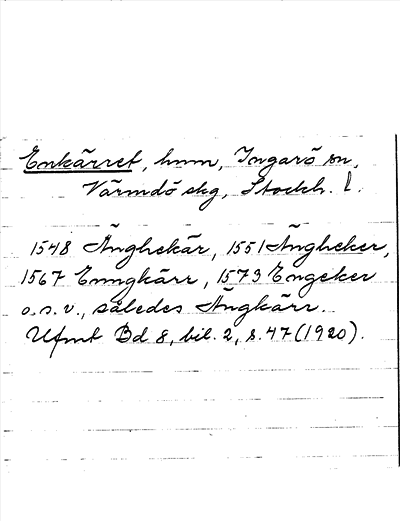 Enkärret, hmn, Ingarö sn,
Värmdö skg, Stockh. l.
1548 Änghekär, 1551 Ängheker,
1567 Enngkärr, 1573 Engeker
o.s.v., således Ängkärr.
Ufmt Bd 8, bil. 2, s. 47 (1920).